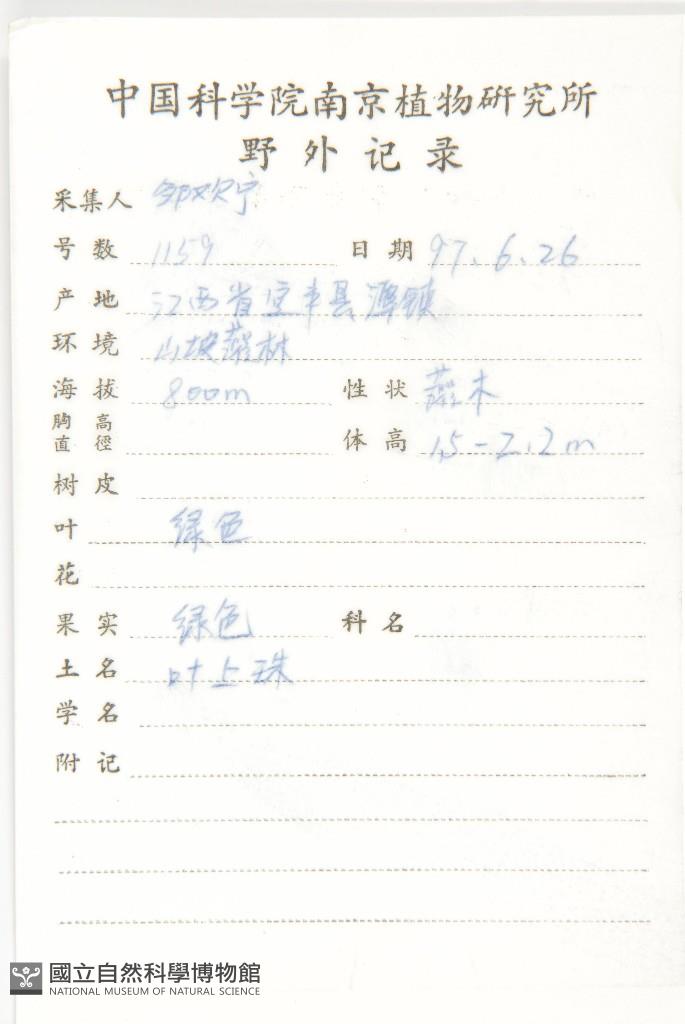 中国科学院南京植物研究所
野外记录
采集人 邹欢宁
号数 1159 日期 97.6.26
产地 江西省宜丰县潭镇
环境 山坡灌林
海拔 800m 性状 灌木
胸高直徑 体高 1.5-2.2m
树皮
叶 绿色
花
果实 绿色 科名
土名 叶上珠
学名
附记
國立自然科學博物館
NATIONAL MUSEUM OF NATURAL SCIENCE